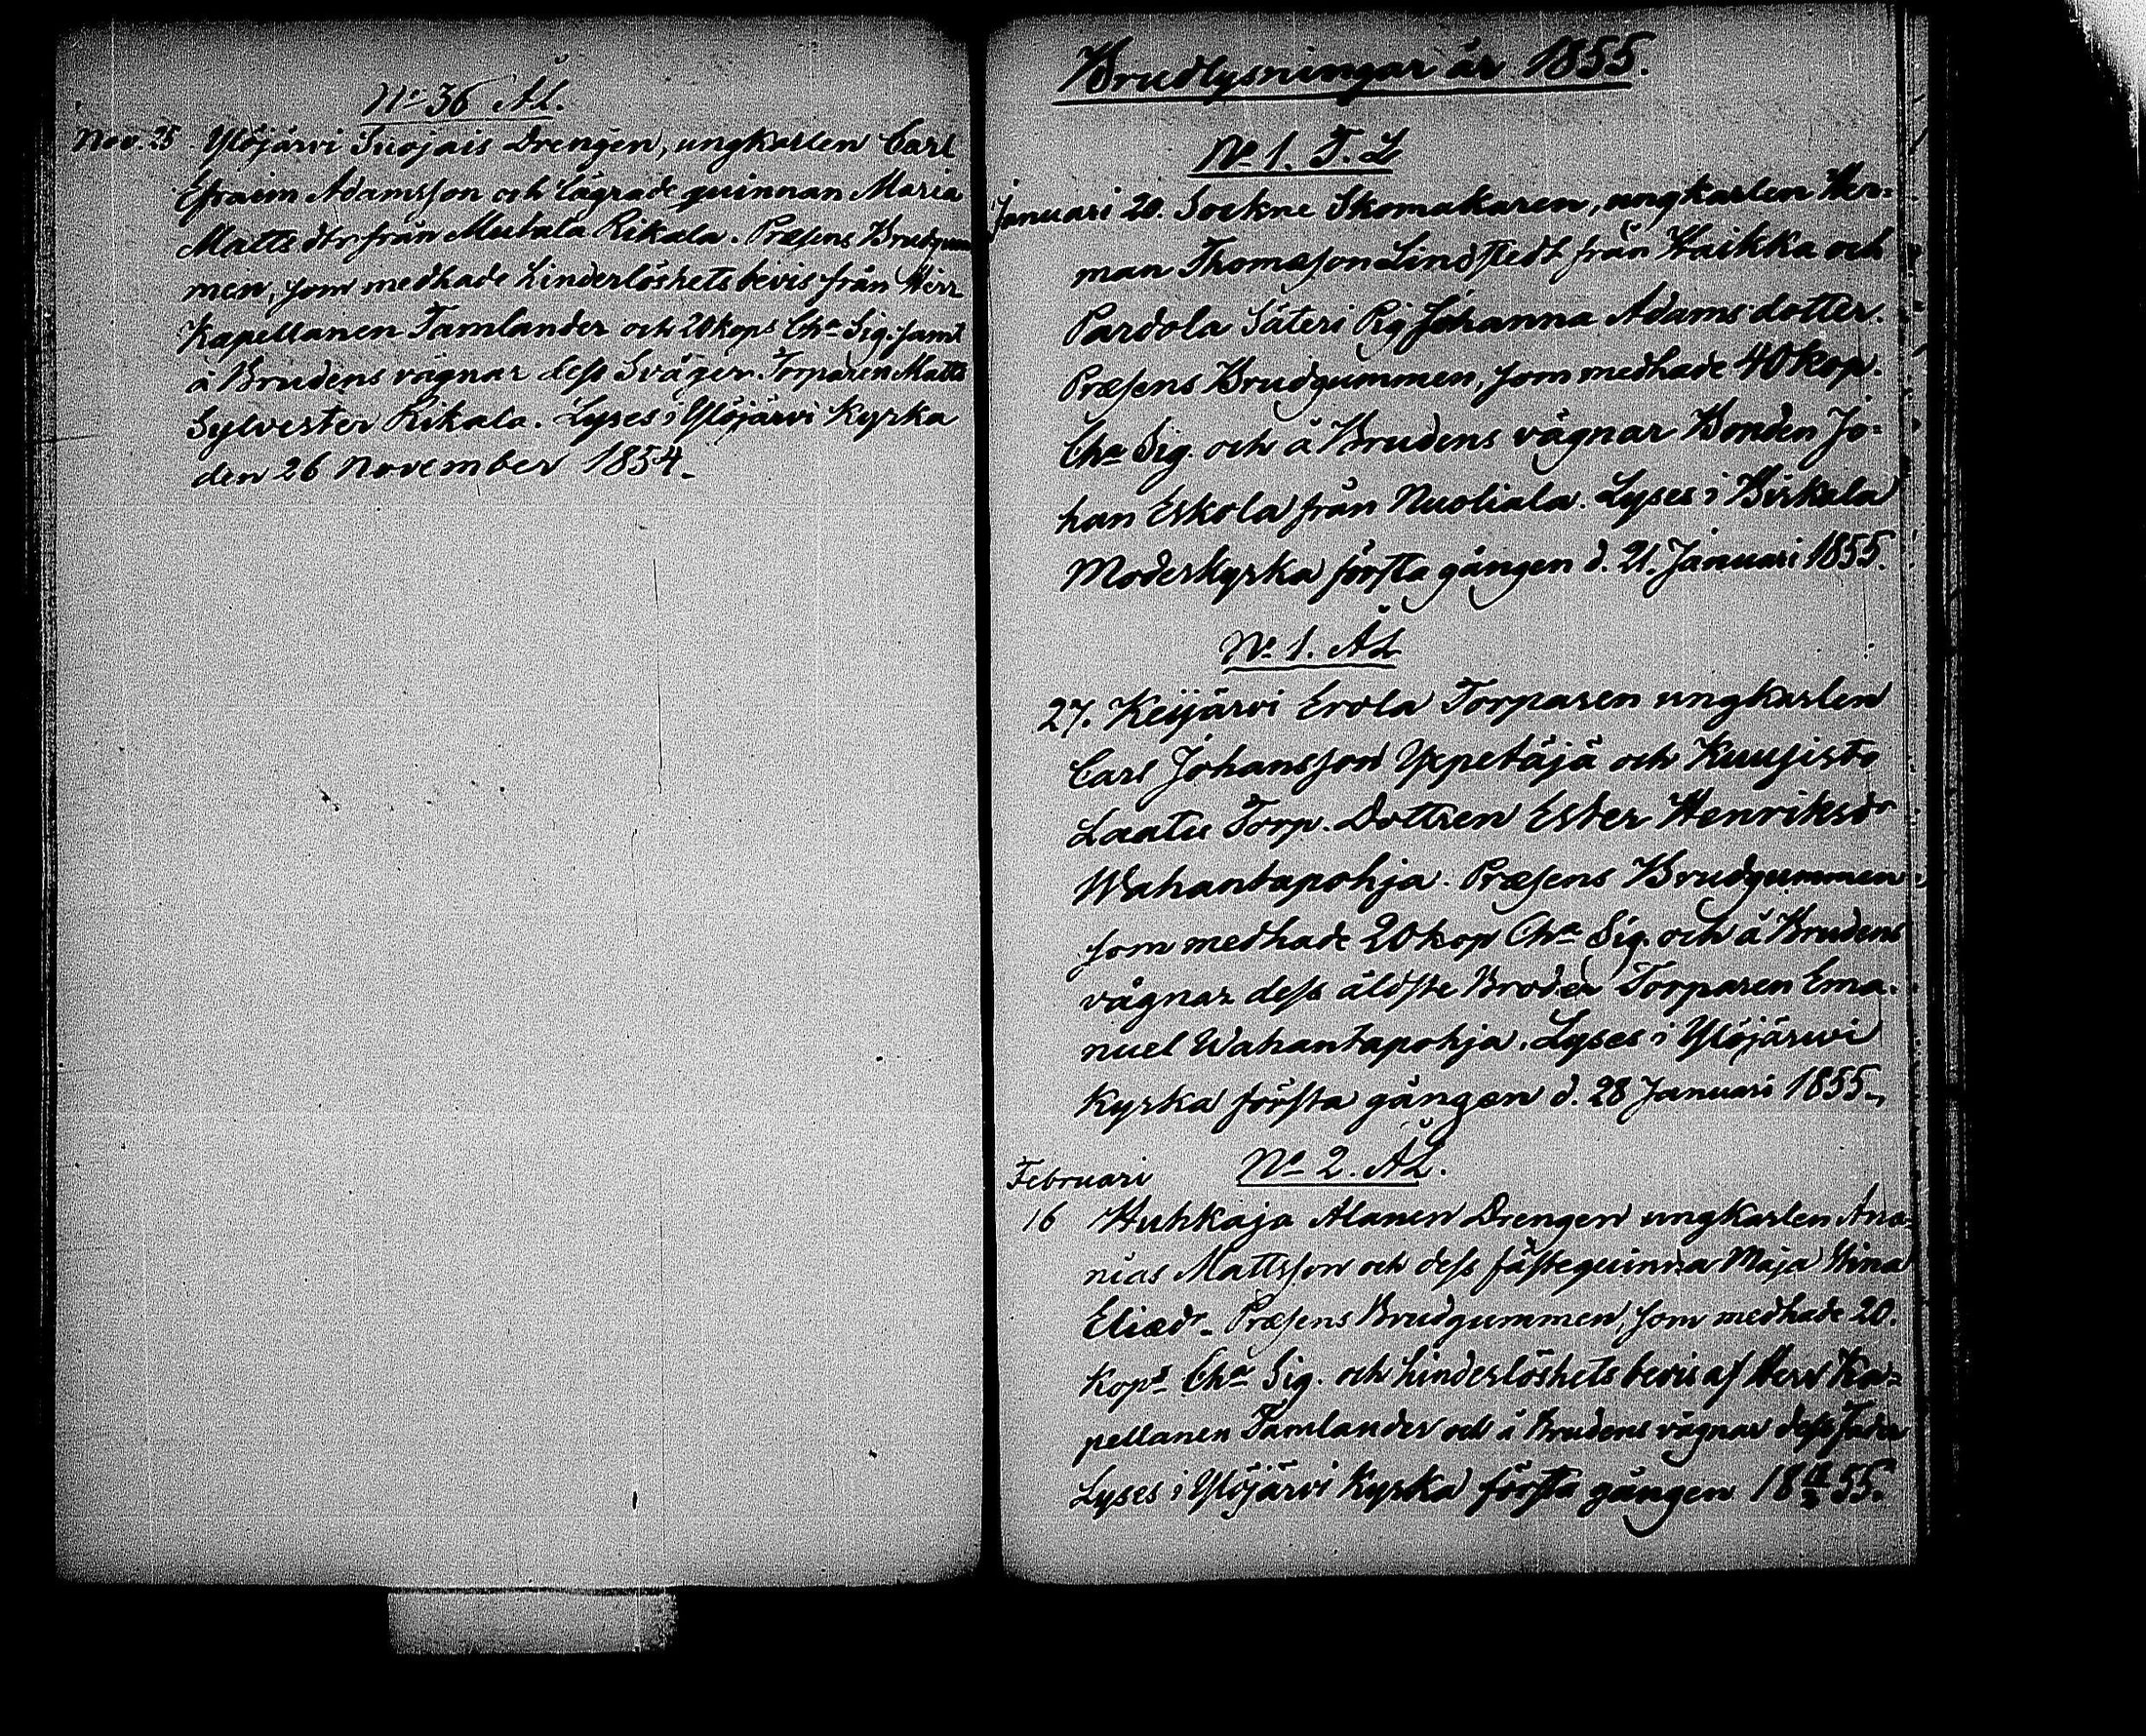 No 36 ÅL.
Nov. 25. Ylöjärvi Suojais Drengen, ungkarlen Carl
Efraim Adamsson och lägrade quinnan Maria
Matts dtr från Mutala Rikala. Præsens Brudgum
men, som medhade hinderlöshets bevis från Herr
Kapellanen Tamlander och 20 kops Cha Sig. samt
å Brudens vägnar dess Svåger Torparen Matts
Sylvester Rikala. Lyses i Ylöjärvi Kyrka
den 26 November 1854.
Brudlysningar år 1855.
No 1. T. L
Januari 20. Sockne Skomakaren, ungkarlen Her=
man Thomasson Lindstedt från Haikka och
Pardola Säteri Pig Johanna Adams dotter.
Præsens Brudgummen, som medhade 40 kop.
Cha Sig. och å Brudens vägnar Bonden Jo=
han Eskola från Nuoliala. Lyses i Birkala
Moderkyrka första gången d. 21. Januari 1855.
No 1. ÅL
27. Keijärvi Erola Torparen ungkarlen
Carl Johansson Yppetäjä och Kuusisto
Laatu Torp. Dottren Ester Henriksdr
Wahantapohja. Præsens Brudgummen
som medhade 20 kop Cha Sig. och å Brudens
vägnar dess äldste Broder Torparen Ema=
nuel Wahantapohja. Lyses i Ylöjärwi
Kyrka första gången d. 28 Januari 1855.
Februari No 2. ÅL.
16 Huhkaja Alanen Drengen ungkarlen Ana=
nias Mattsson och dess fästequinna Maja Stina
Eliædr. Præsens Brudgummen, som medhade 20.
kops Cha Sig. och hinderlöshets bevis af Herr Ka=
pellanen Tamlander och å Brudens vägnar dess Fader
Lyses i Ylöjärvi Kyrka första gången 18 55.